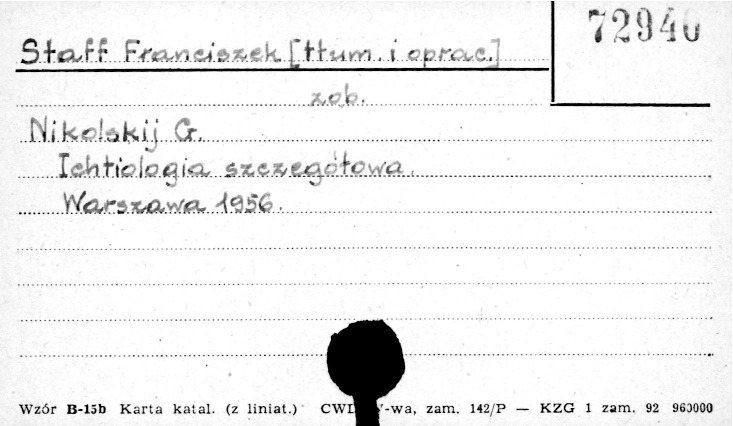 72940
Staff Franciszek [tłum. i oprac.]
zob.
Nikolskij G.
Ichtiologia szczegółowa.
Warszawa 1956.
Wzór B-15b Karta katal. (z liniat.) -wa, zam. 142/P — KZG 1 zam. 92 960000